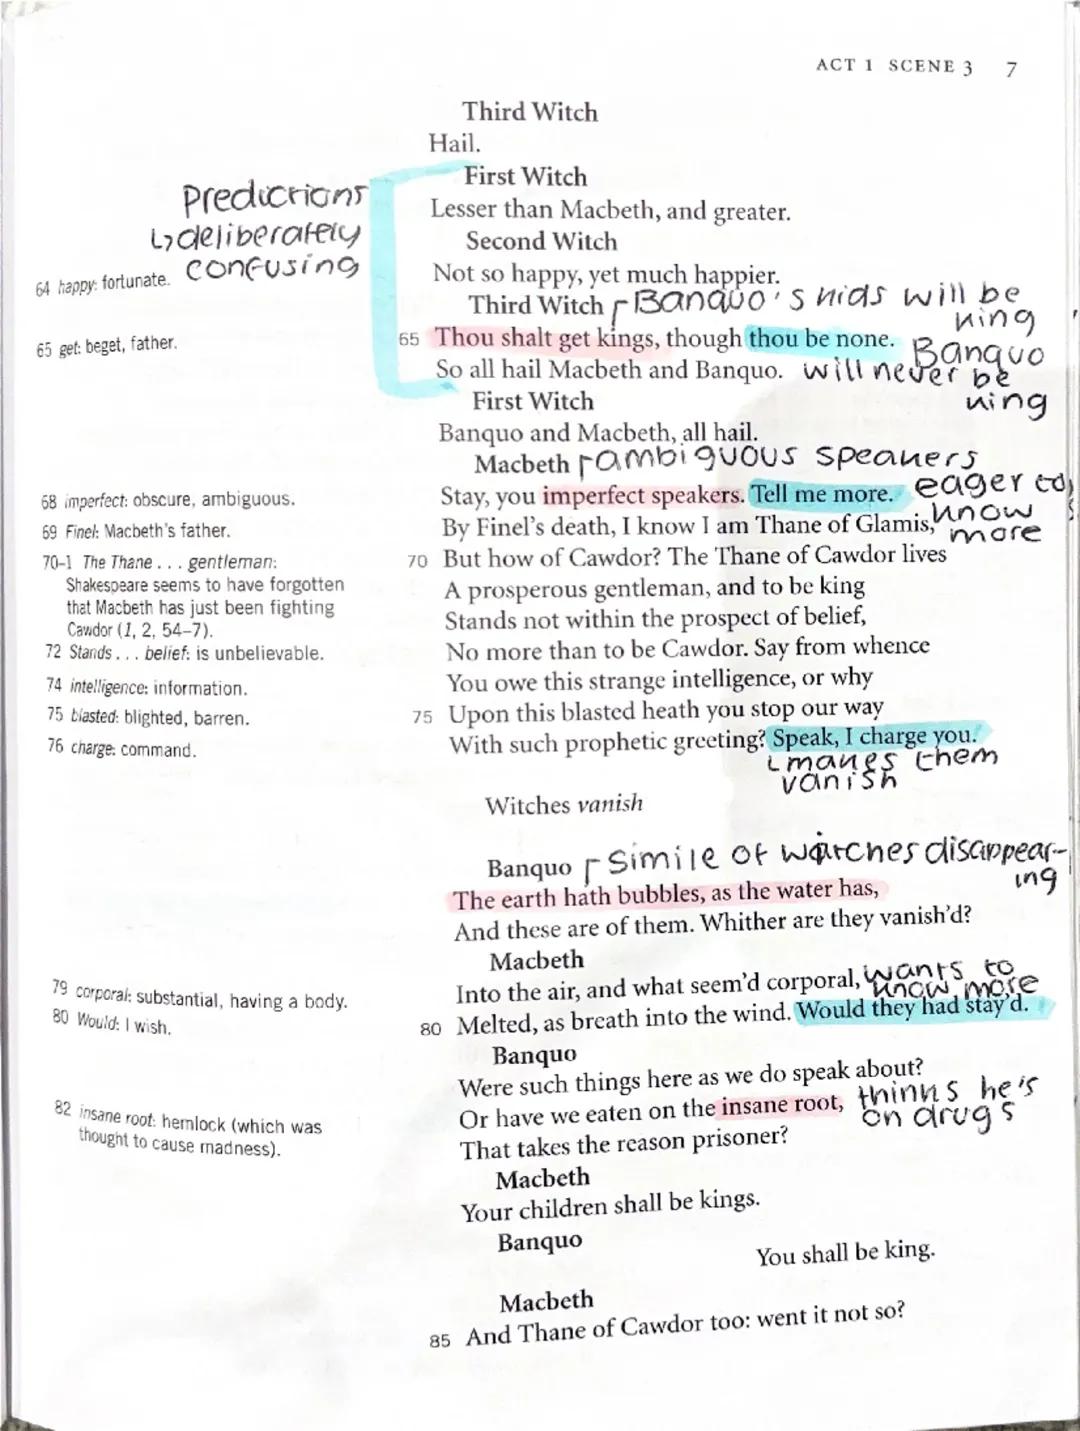 ACT 1 SCENE 3 7
Third Witch
Hail.
First Witch
Predictions
Lesser than Macbeth, and greater.
↳deliberately
Second Witch
confusing
64 happy: fortunate.
Not so happy, yet much happier.
Third Witch
Banquo's kids will be
king
65 get: beget, father.
65 Thou shalt get kings, though thou be none.
Banquo
So all hail Macbeth and Banquo.
will never be
king
First Witch
Banquo and Macbeth, all hail.
Macbeth
ambiguous speakers
68 imperfect: obscure, ambiguous.
Stay, you imperfect speakers. Tell me more.
eager to
know
more
69 Finel: Macbeth's father.
By Finel's death, I know I am Thane of Glamis,
70-1 The Thane . . . gentleman:
Shakespeare seems to have forgotten
that Macbeth has just been fighting
Cawdor (1, 2, 54–7).
70 But how of Cawdor? The Thane of Cawdor lives
A prosperous gentleman, and to be king
Stands not within the prospect of belief,
72 Stands . . . belief: is unbelievable.
No more than to be Cawdor. Say from whence
74 intelligence: information.
You owe this strange intelligence, or why
75 blasted: blighted, barren.
75 Upon this blasted heath you stop our way
76 charge: command.
With such prophetic greeting? Speak, I charge you.
makes them
vanish
Witches vanish
Banquo
Simile of witches disappear-
ing
The earth hath bubbles, as the water has,
And these are of them. Whither are they vanish'd?
Macbeth
79 corporal: substantial, having a body.
Into the air, and what seem'd corporal,
wants to
know more
80 Would: I wish.
80 Melted, as breath into the wind. Would they had stay'd.
Banquo
Were such things here as we do speak about?
82 insane root: hemlock (which was
thought to cause madness).
Or have we eaten on the insane root,
thinks he's
on drugs
That takes the reason prisoner?
Macbeth
Your children shall be kings.
Banquo
You shall be king.
Macbeth
85 And Thane of Cawdor too: went it not so?